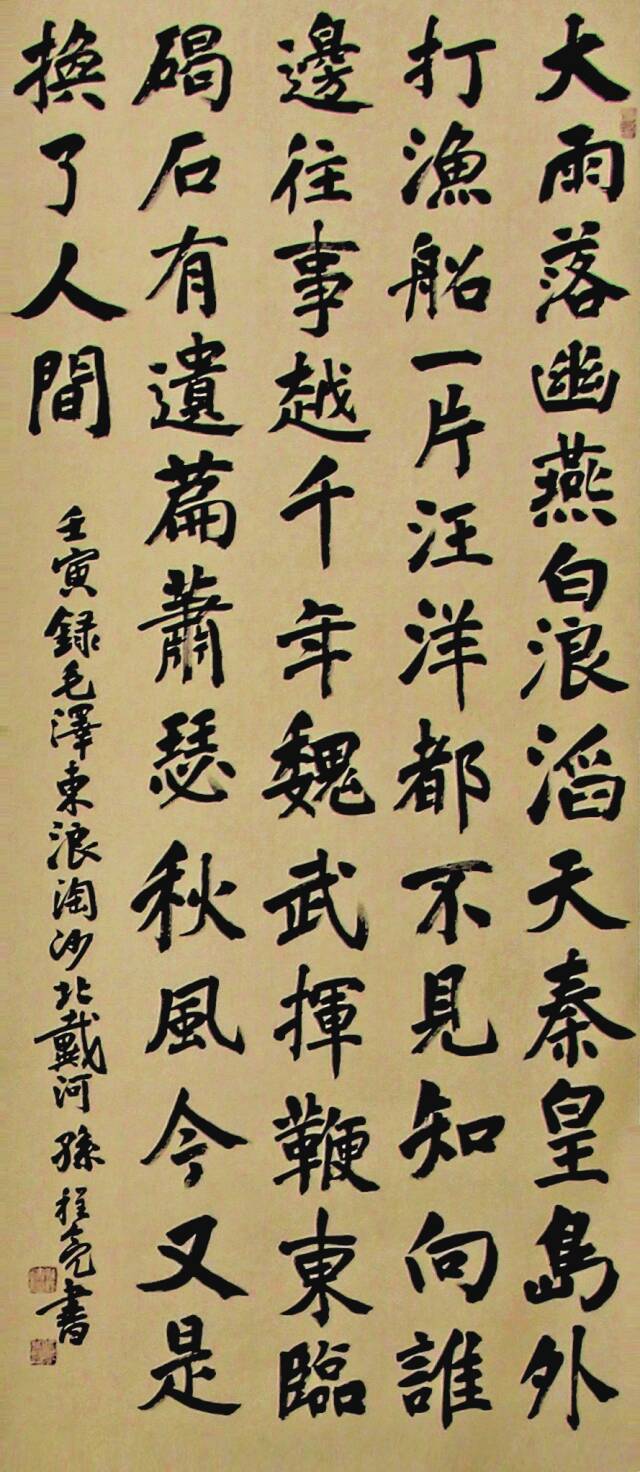 大雨落幽燕白浪滔天秦皇島外
打漁船一片汪洋都不見知向誰
邊往事越千年魏武揮鞭東臨
碣石有遺篇蕭瑟秋風今又是
換了人間
壬寅録毛澤東浪淘沙北戴河 孫程亮書